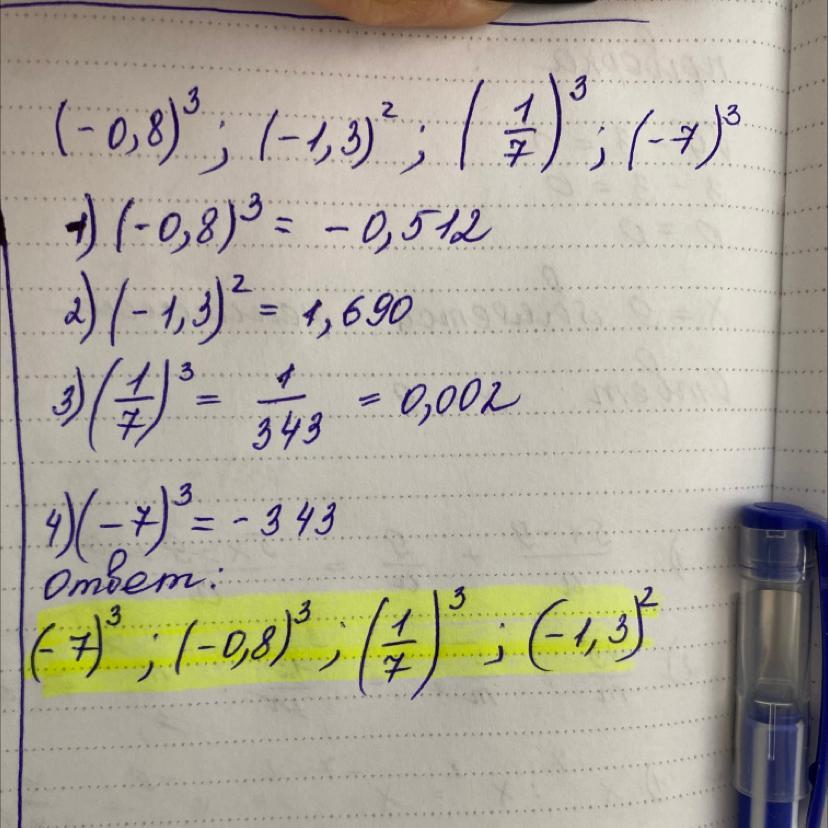 (-0,8)³; (-1,3)²; (1/7)³; (-7)³
1) (-0,8)³ = -0,512
2) (-1,3)² = 1,690
3) (1/7)³ = 1/343 = 0,002
4) (-7)³ = -343
Ответ:
(-7)³; (-0,8)³; (1/7)³; (-1,3)²